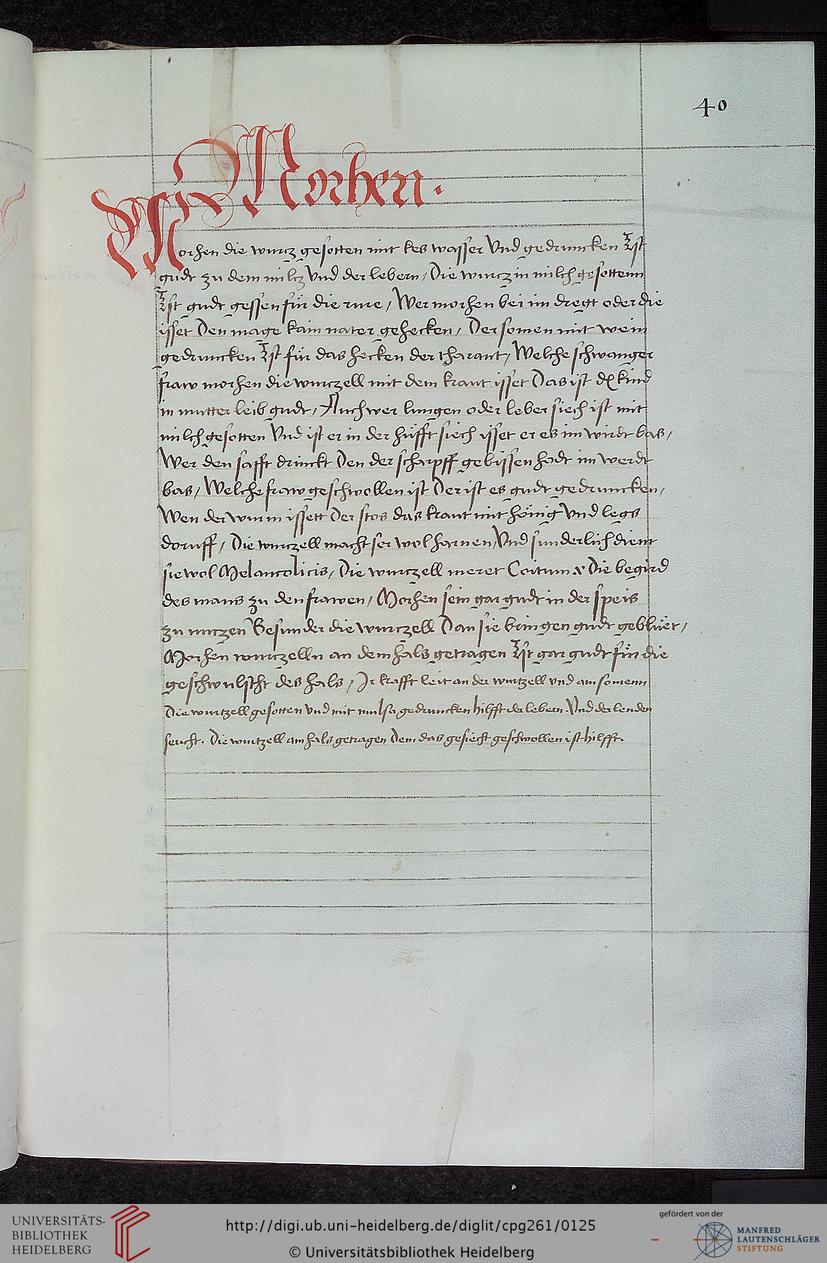 40
Morhen.
Morhen die wurcz gesotten mit kes wasser Vnd gedruncken Ist
gudt zu dem milcz Vnd der lebern, Die wurcz in milch gesottenn
Ist gudt gessen für die rure, Wer morhen bei im dregt oder die
isset Den mage kain nater gehecken, Der somen mit wein
gedruncken Ist für das hecken der tharant, Welche schwanger
fraw morhen die wurczell mit dem kraut isset Das ist dz kind
in mutter leib gudt, Auch wer lungen oder leber siech ist mit
milch gesotten Vnd ist er in der hüfft siech isset er es im wirdt bas,
Wer den safft drinckt Den der scharpff gebissen hadt im werdt
bas, Welche fraw geschwollen ist Der ist es gudt gedruncken,
Wen der wurm issett Der stos das kraut mit hönig Vnd legs
doruff, Die wurczell macht ser wol harnen, Vnd sunderlich dient
sie wol Melancolicis, Die wurczell meret Coitum Die begird
des mans zu den frawen, Morhen sein gar gudt in der speis
zu nuczen Besunder die wurczell Dan sie bringen gudt geblüet,
Morhen wurczelln an dem hals getragen Ist gar gudt für die
geschwulscht des hals, Ir krafft leit an der wurtzell vnd am somenn
Die wurtzell gesotten Vnd mit mulsa gedruncken hilfft der lebern Vnd der lenden
seucht. Die wurtzell am hals getragen Dem das gesiecht geschwollen ist hilfft.
UNIVERSITÄTS-
BIBLIOTHEK
HEIDELBERG
http://digi.ub.uni-heidelberg.de/diglit/cpg261/0125
© Universitätsbibliothek Heidelberg
gefördert von der
MANFRED
LAUTENSCHLÄGER
STIFTUNG